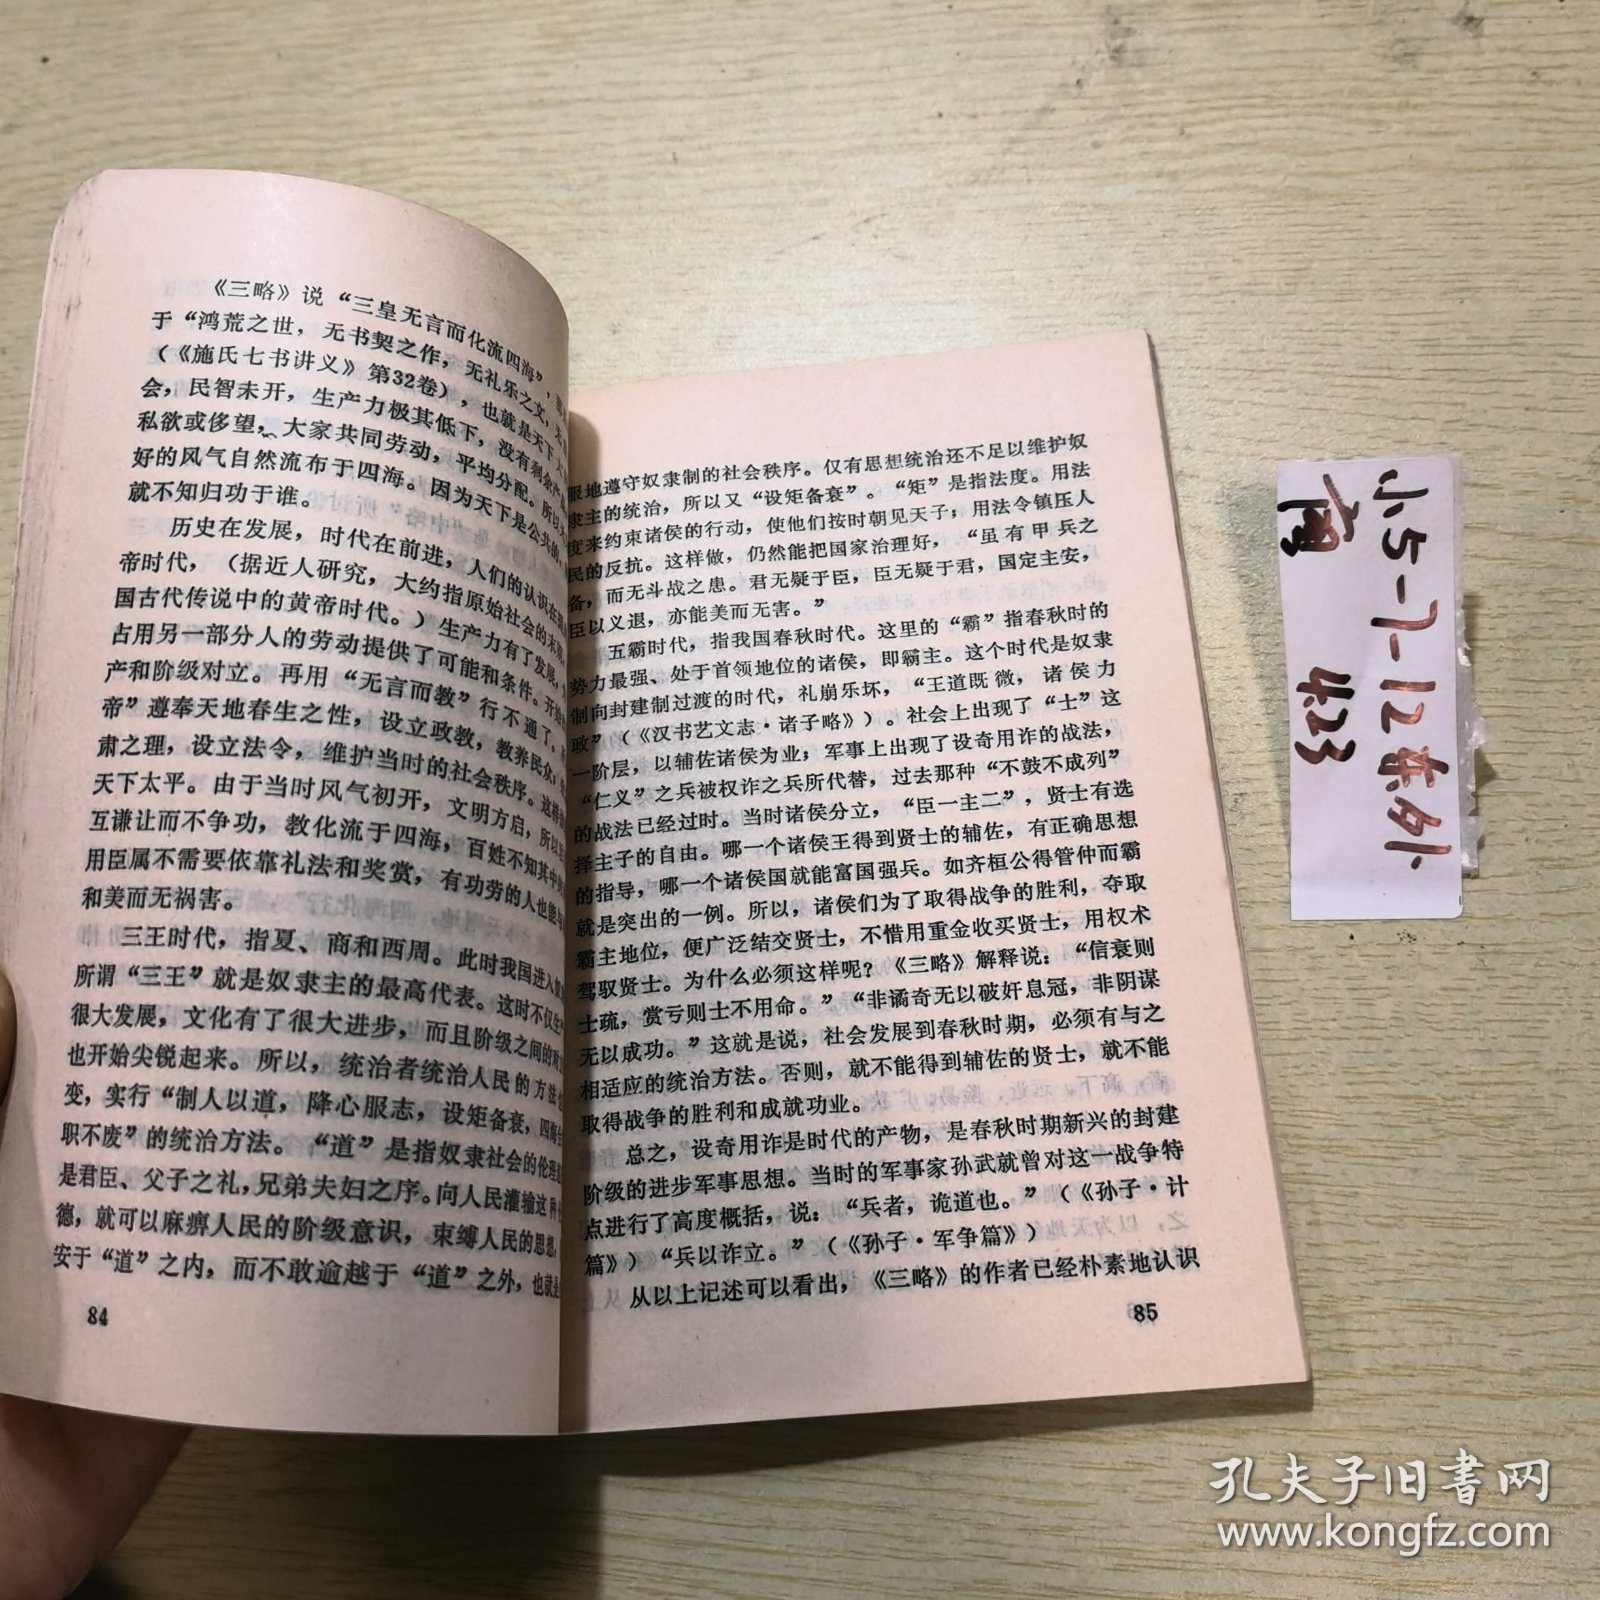 《三略》说“三皇无言而化流四海”，
于“鸿荒之世，无书契之作，无礼乐之文，
（《施氏七书讲义》第32卷），也就是天下
会，民智未开，生产力极其低下，没有剩余产
私欲或侈望，大家共同劳动，平均分配。所以
好的风气自然流布于四海。因为天下是公共的，
就不知归功于谁。
历史在发展，时代在前进，人们的认识在
帝时代，（据近人研究，大约指原始社会的末
国古代传说中的黄帝时代。）生产力有了发展，
占用另一部分人的劳动提供了可能和条件。开始
产和阶级对立。再用“无言而教”行不通了，
帝”遵奉天地春生之性，设立政教，教养民众；
肃之理，设立法令，维护当时的社会秩序。这样
天下太平。由于当时风气初开，文明方启，所以
互谦让而不争功，教化流于四海，百姓不知其中
用臣属不需要依靠礼法和奖赏，有功劳的人也能与
和美而无祸害。
三王时代，指夏、商和西周。此时我国进入
所谓“三王”就是奴隶主的最高代表。这时不仅生
很大发展，文化有了很大进步，而且阶级之间的对
也开始尖锐起来。所以，统治者统治人民的方法
变，实行“制人以道，降心服志，设矩备衰，四海
职不废”的统治方法。“道”是指奴隶社会的伦理
是君臣、父子之礼，兄弟夫妇之序。向人民灌输这种
德，就可以麻痹人民的阶级意识，束缚人民的思想，
安于“道”之内，而不敢逾越于“道”之外，也就是
84
眼地遵守奴隶制的社会秩序。仅有思想统治还不足以维护奴
隶主的统治，所以又“设矩备衰”。“矩”是指法度。用法
度来约束诸侯的行动，使他们按时朝见天子；用法令镇压人
民的反抗。这样做，仍然能把国家治理好，“虽有甲兵之
备，而无斗战之患。君无疑于臣，臣无疑于君，国定主安，
臣以义退，亦能美而无害。”
五霸时代，指我国春秋时代。这里的“霸”指春秋时的
势力最强、处于首领地位的诸侯，即霸主。这个时代是奴隶
制向封建制过渡的时代，礼崩乐坏，“王道既微，诸侯力
政”（《汉书艺文志·诸子略》）。社会上出现了“士”这
一阶层，以辅佐诸侯为业；军事上出现了设奇用诈的战法，
“仁义”之兵被权诈之兵所代替，过去那种“不鼓不成列”
的战法已经过时。当时诸侯分立，“臣一主二”，贤士有选
择主子的自由。哪一个诸侯王得到贤士的辅佐，有正确思想
的指导，哪一个诸侯国就能富国强兵。如齐桓公得管仲而霸
就是突出的一例。所以，诸侯们为了取得战争的胜利，夺取
霸主地位，便广泛结交贤士，不惜用重金收买贤士，用权术
驾驭贤士。为什么必须这样呢？《三略》解释说：“信衰则
士疏，赏亏则士不用命。”“非谲奇无以破奸息冠，非阴谋
无以成功。”这就是说，社会发展到春秋时期，必须有与之
相适应的统治方法。否则，就不能得到辅佐的贤士，就不能
取得战争的胜利和成就功业。
总之，设奇用诈是时代的产物，是春秋时期新兴的封建
阶级的进步军事思想。当时的军事家孙武就曾对这一战争特
点进行了高度概括，说：“兵者，诡道也。”（《孙子·计
篇》）“兵以诈立。”（《孙子·军争篇》）
从以上记述可以看出，《三略》的作者已经朴素地认识
85
小5-7-12东外
423
孔夫子旧书网
www.kongfz.com